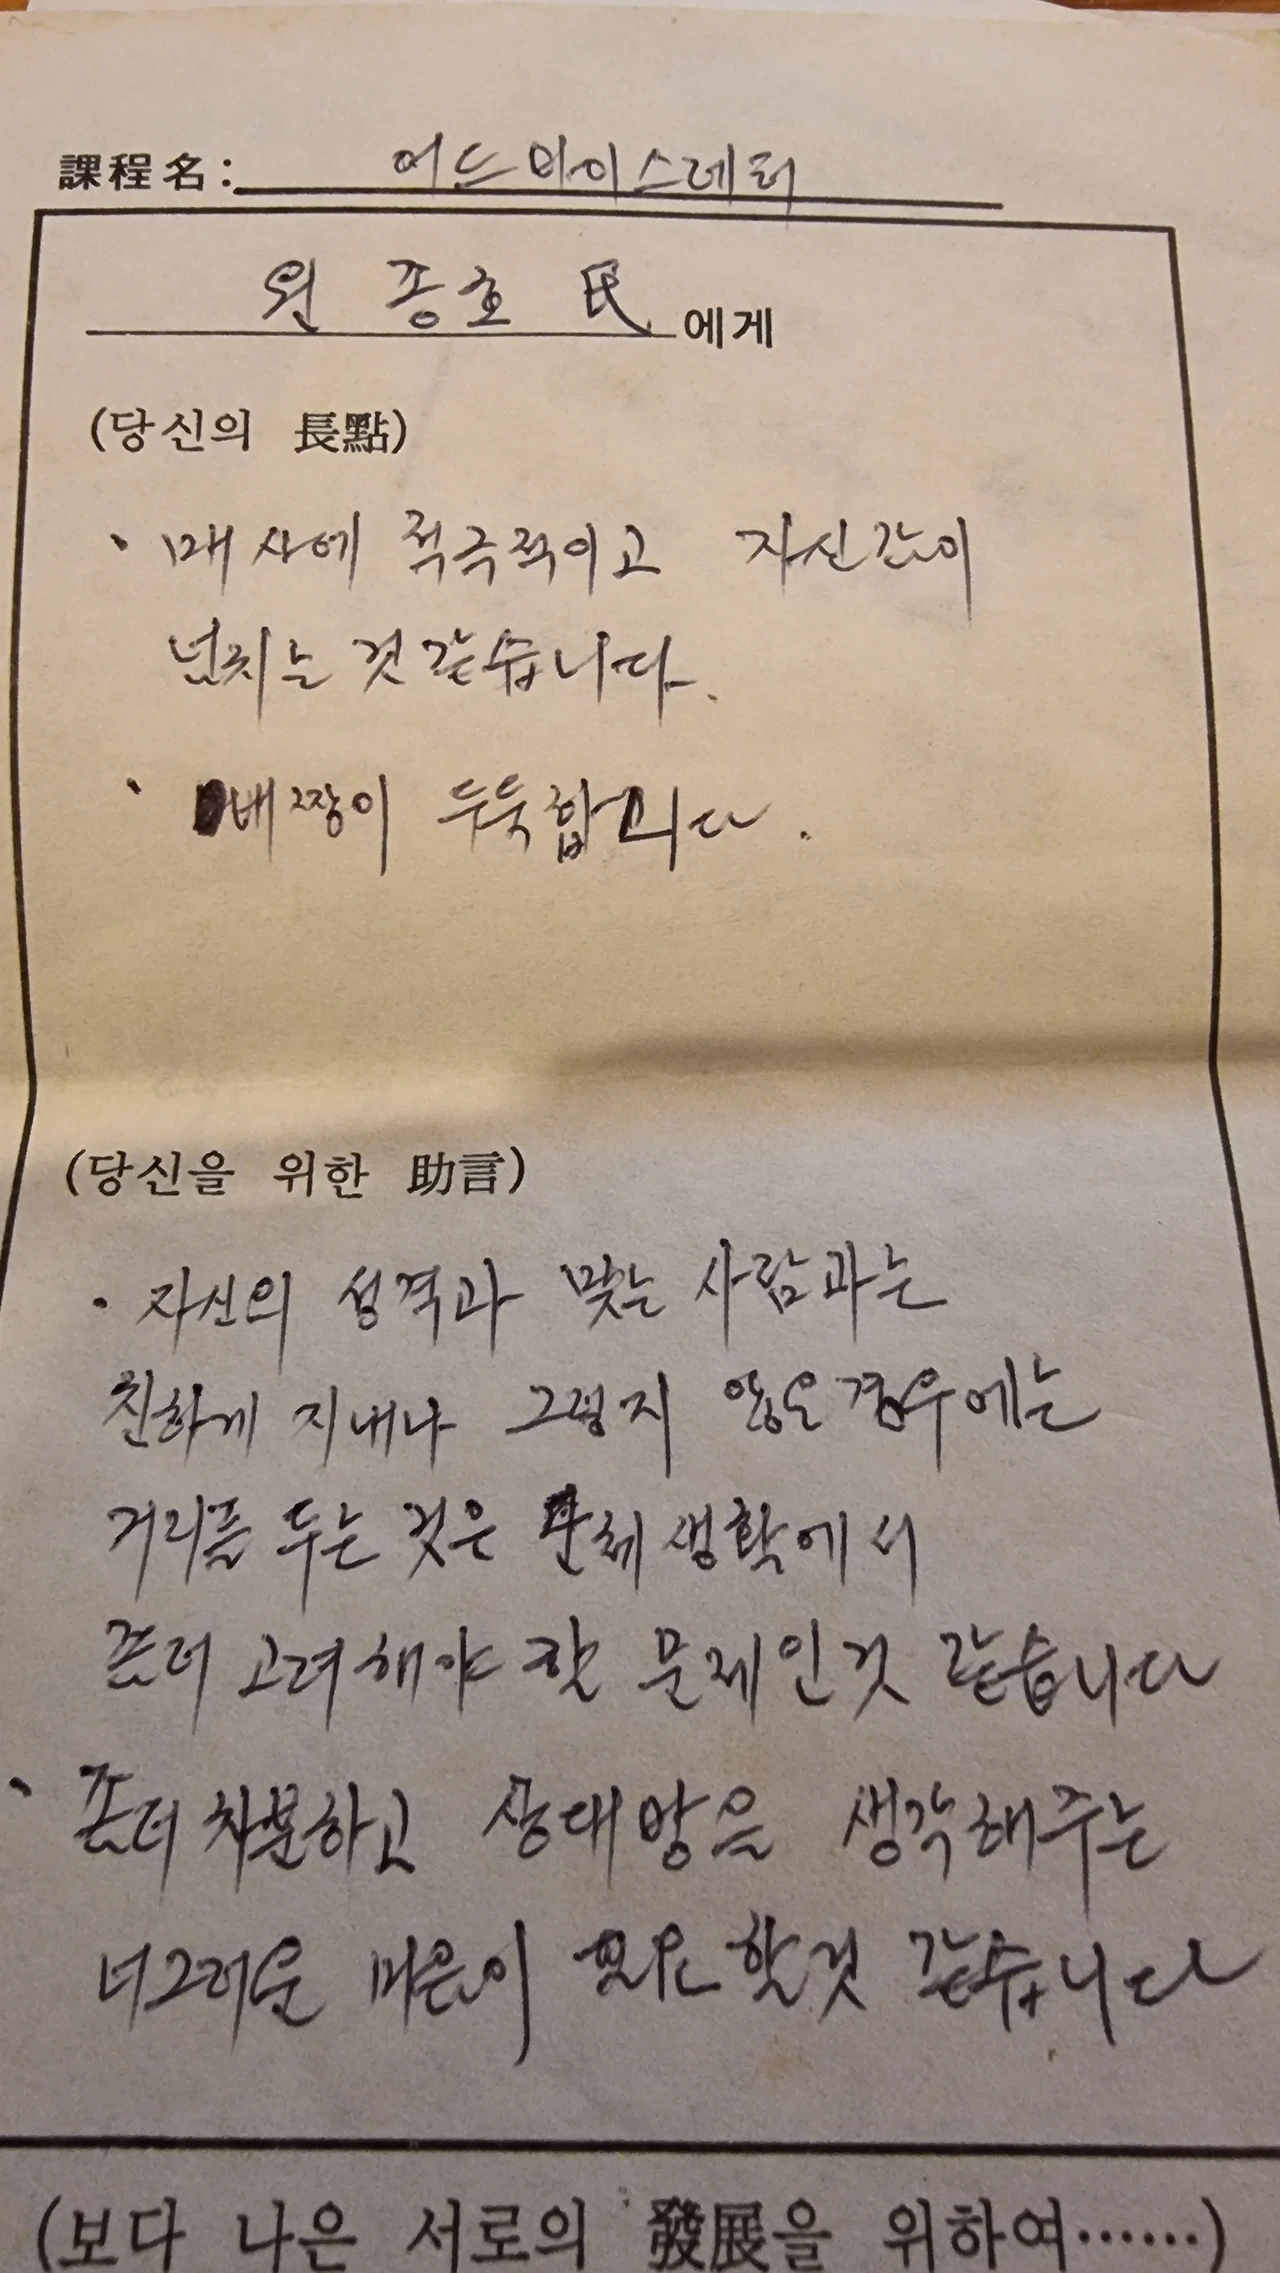 課程名: 어드마이스레터
원 종호 氏 에게
(당신의 長點)
· 매사에 적극적이고 자신감이
넘치는 것 같습니다.
· 배짱이 두둑합니다.
(당신을 위한 助言)
· 자신의 성격과 맞는 사람과는
친하게 지내나 그렇지 않은 경우에는
거리를 두는 것은 단체생활에서
좀더 고려해야 할 문제인것 같습니다
· 좀더 차분하고 상대방을 생각해주는
너그러운 마음이 필요할것 같습니다
(보다 나은 서로의 發展을 위하여……)